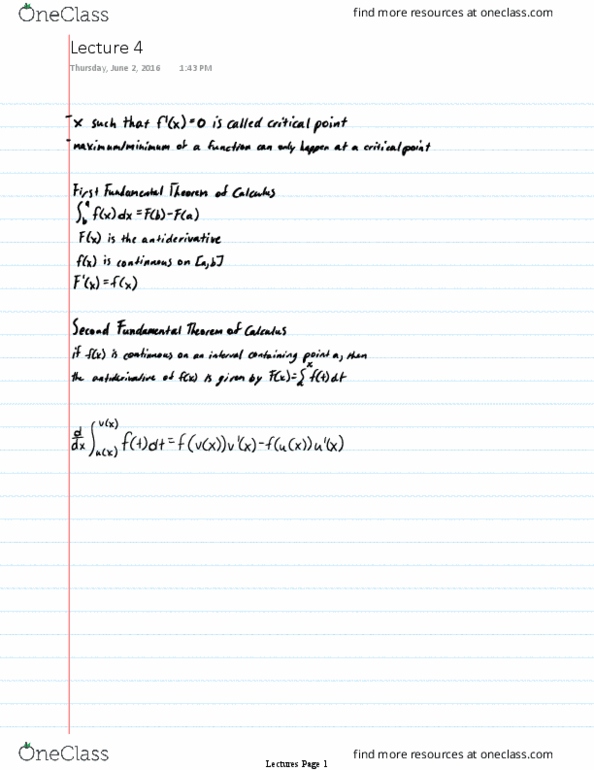 OneClass
find more resources at oneclass.com
Lecture 4
Thursday, June 2, 2016 1:43 PM
- x such that f'(x)=0 is called critical point
- maximum/minimum of a function can only happen at a critical point
First Fundamental Theorem of Calculus
∫_b^a f(x)dx = F(b)-F(a)
F(x) is the antiderivative
f(x) is continuous on [a,b]
F'(x)=f(x)
Second Fundamental Theorem of Calculus
if f(x) is continuous on an interval containing point a, then
the antiderivative of f(x) is given by F(x)=∫_a^x f(t)dt
d/dx ∫_{u(x)}^{v(x)} f(t)dt = f(v(x))v'(x)-f(u(x))u'(x)
OneClass
Lectures Page 1
find more resources at oneclass.com